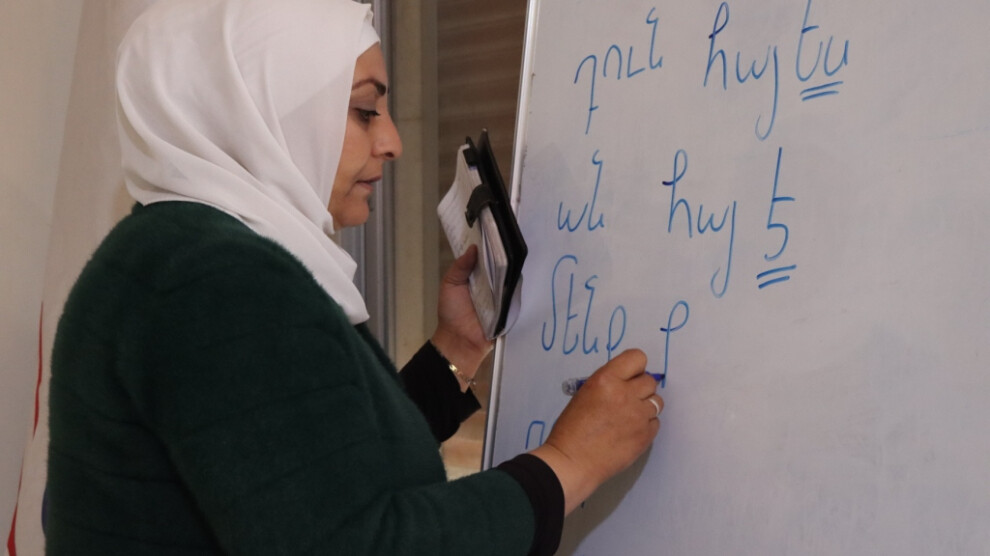 դուն հայ ես
ան հայ է
մենք